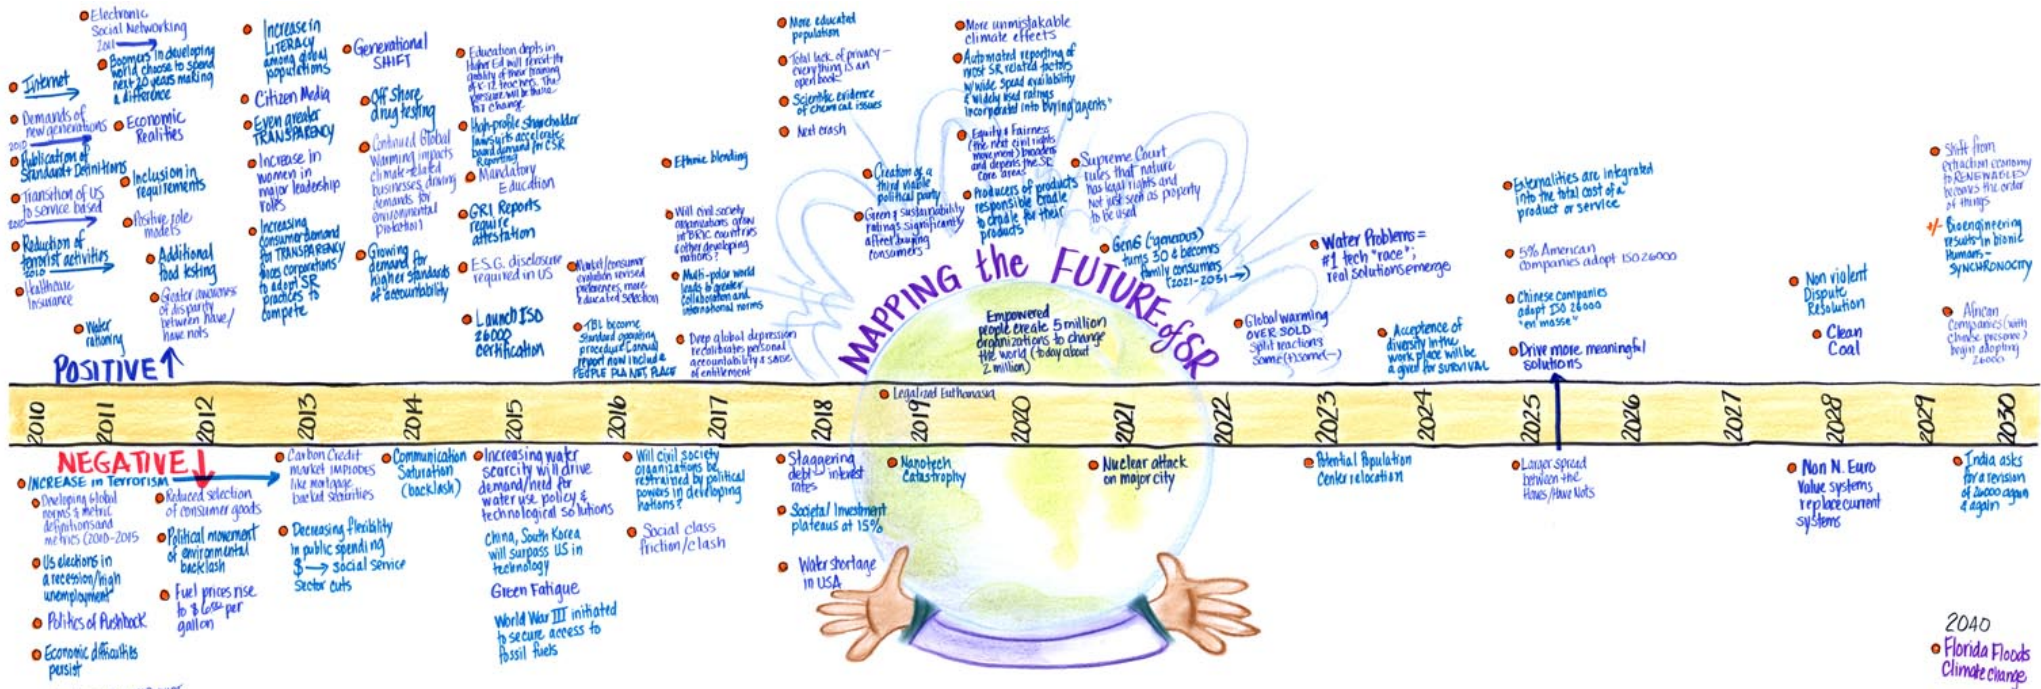 Electronic
Social Networking
2011
Boomers in developing
world choose to spend
next 20 years making
a difference
Internet
Demands of
new generations
2010
Publication of
Standard + Definitions
Transition of US
to service based
2010
Reduction of
terrorist activities
2010
Healthcare
Insurance
Water
rationing
Economic
Realities
Inclusion in
requirements
Positive role
models
Additional
food testing
Greater awareness
of disparity
between have/
have nots
POSITIVE
Increase in
LITERACY
among global
populations
Citizen Media
Even greater
TRANSPARENCY
Increase in
women in
major leadership
roles
Increasing
consumer demand
for TRANSPARENCY
forces corporations
to adopt SR
practices to
compete
Generational
SHIFT
Off Shore
drug testing
Continued Global
Warming impacts
climate-related
businesses, driving
demands for
environmental
protection
Growing
demand for
higher standards
of accountability
Education depts in
Higher Ed will revisit the
quality of their training
of K-12 teachers. The
pressure will be there
for change
High-profile shareholder
lawsuits accelerate
board demand for CSR
Reporting
Mandatory
Education
GRI Reports
require
attestation
E.S.G. disclosure
required in US
Launch ISO
26000
Certification
Market/consumer
evolution revised
preferences, more
educated selection
TBL become
standard operating
procedure (annual
report now include
PEOPLE PLANET, PLACE
Ethnic blending
Will civil society
organizations grow
in BRIC countries
& other developing
nations?
Multi-polar world
leads to greater
collaboration and
international norms
Deep global depression
recalibrates personal
accountability & sense
of entitlement
More educated
population
Total lack of privacy -
everything is an
open book
Scientific evidence
of chemical issues
Next crash
Creation of a
third viable
political party
Green & sustainability
ratings significantly
affect buying
consumers
More unmistakable
climate effects
Automated reporting of
most SR related factors
w/wide spead availability
& widely used ratings
incorporated into buying "agents"
Equity & Fairness
(the next civil rights
movement) broadens
and depens the SR
core areas
Producers of products
responsible Cradle
to Cradle for their
products
Supreme Court
rules that nature
has legal rights and
Not just seen as property
to be used
Gen G (generous)
turns 30 & becomes
family consumers
(2021-2031→)
MAPPING the FUTURE of SR
Empowered
people create 5 million
organizations to change
the world (today about
2 million)
Water Problems =
#1 tech "race";
real solutions emerge
Global warming
OVER SOLD
Split reactions
Some(+) some(-)
Acceptance of
diversity in the
work place will be
a given for SURVIVAL
Externalities are integrated
into the total cost of a
product or service
5% American
companies adopt ISO 26000
Chinese companies
adopt ISO 26000
"en masse"
Drive more meaningful
solutions
Non violent
Dispute
Resolution
Clean
Coal
Shift from
extraction economy
to RENEWABLES
becomes the order
of things
+/- Bioengineering
results in bionic
Humans-
SYNCHRONOCITY
African
Companies (with
Chinese presence)
begin adopting
26000
Legalized Euthanasia
2010 2011 2012 2013 2014 2015 2016 2017 2018 2019 2020 2021 2022 2023 2024 2025 2026 2027 2028 2029 2030
NEGATIVE
INCREASE in Terrorism
Developing Global
norms & metric
definitions and
metrics (2010-2015
US elections in
a recession/high
unemployment
Politics of Pushback
Economic difficulties
persist
Reduced selection
of consumer goods
Political movement
of environmental
backlash
Fuel prices rise
to $ per
gallon
Carbon Credit
market IMPLODES
like mortgage
backed securities
Decreasing flexibility
in public spending
$ → social service
Sector cuts
Communication
Saturation
(backlash)
Increasing water
scarcity will drive
demand/need for
water use policy &
technological solutions
China, South Korea
will surpass US in
technology
Green Fatigue
World War III initiated
to secure access to
fossil fuels
Will civil society
organizations be
restrained by political
powers in developing
nations?
Social class
friction/clash
Staggering
debt - interest
rates
Societal Investment
plateaus at 15%
Water shortage
in USA
Nanotech
Catastrophy
Nuclear attack
on major city
Potential Population
Center relocation
Larger spread
between the
Haves/Have Nots
Non N. Euro
Value systems
replace current
systems
India asks
for a revision
of 26000 again
& again
2040
Florida Floods
Climate change